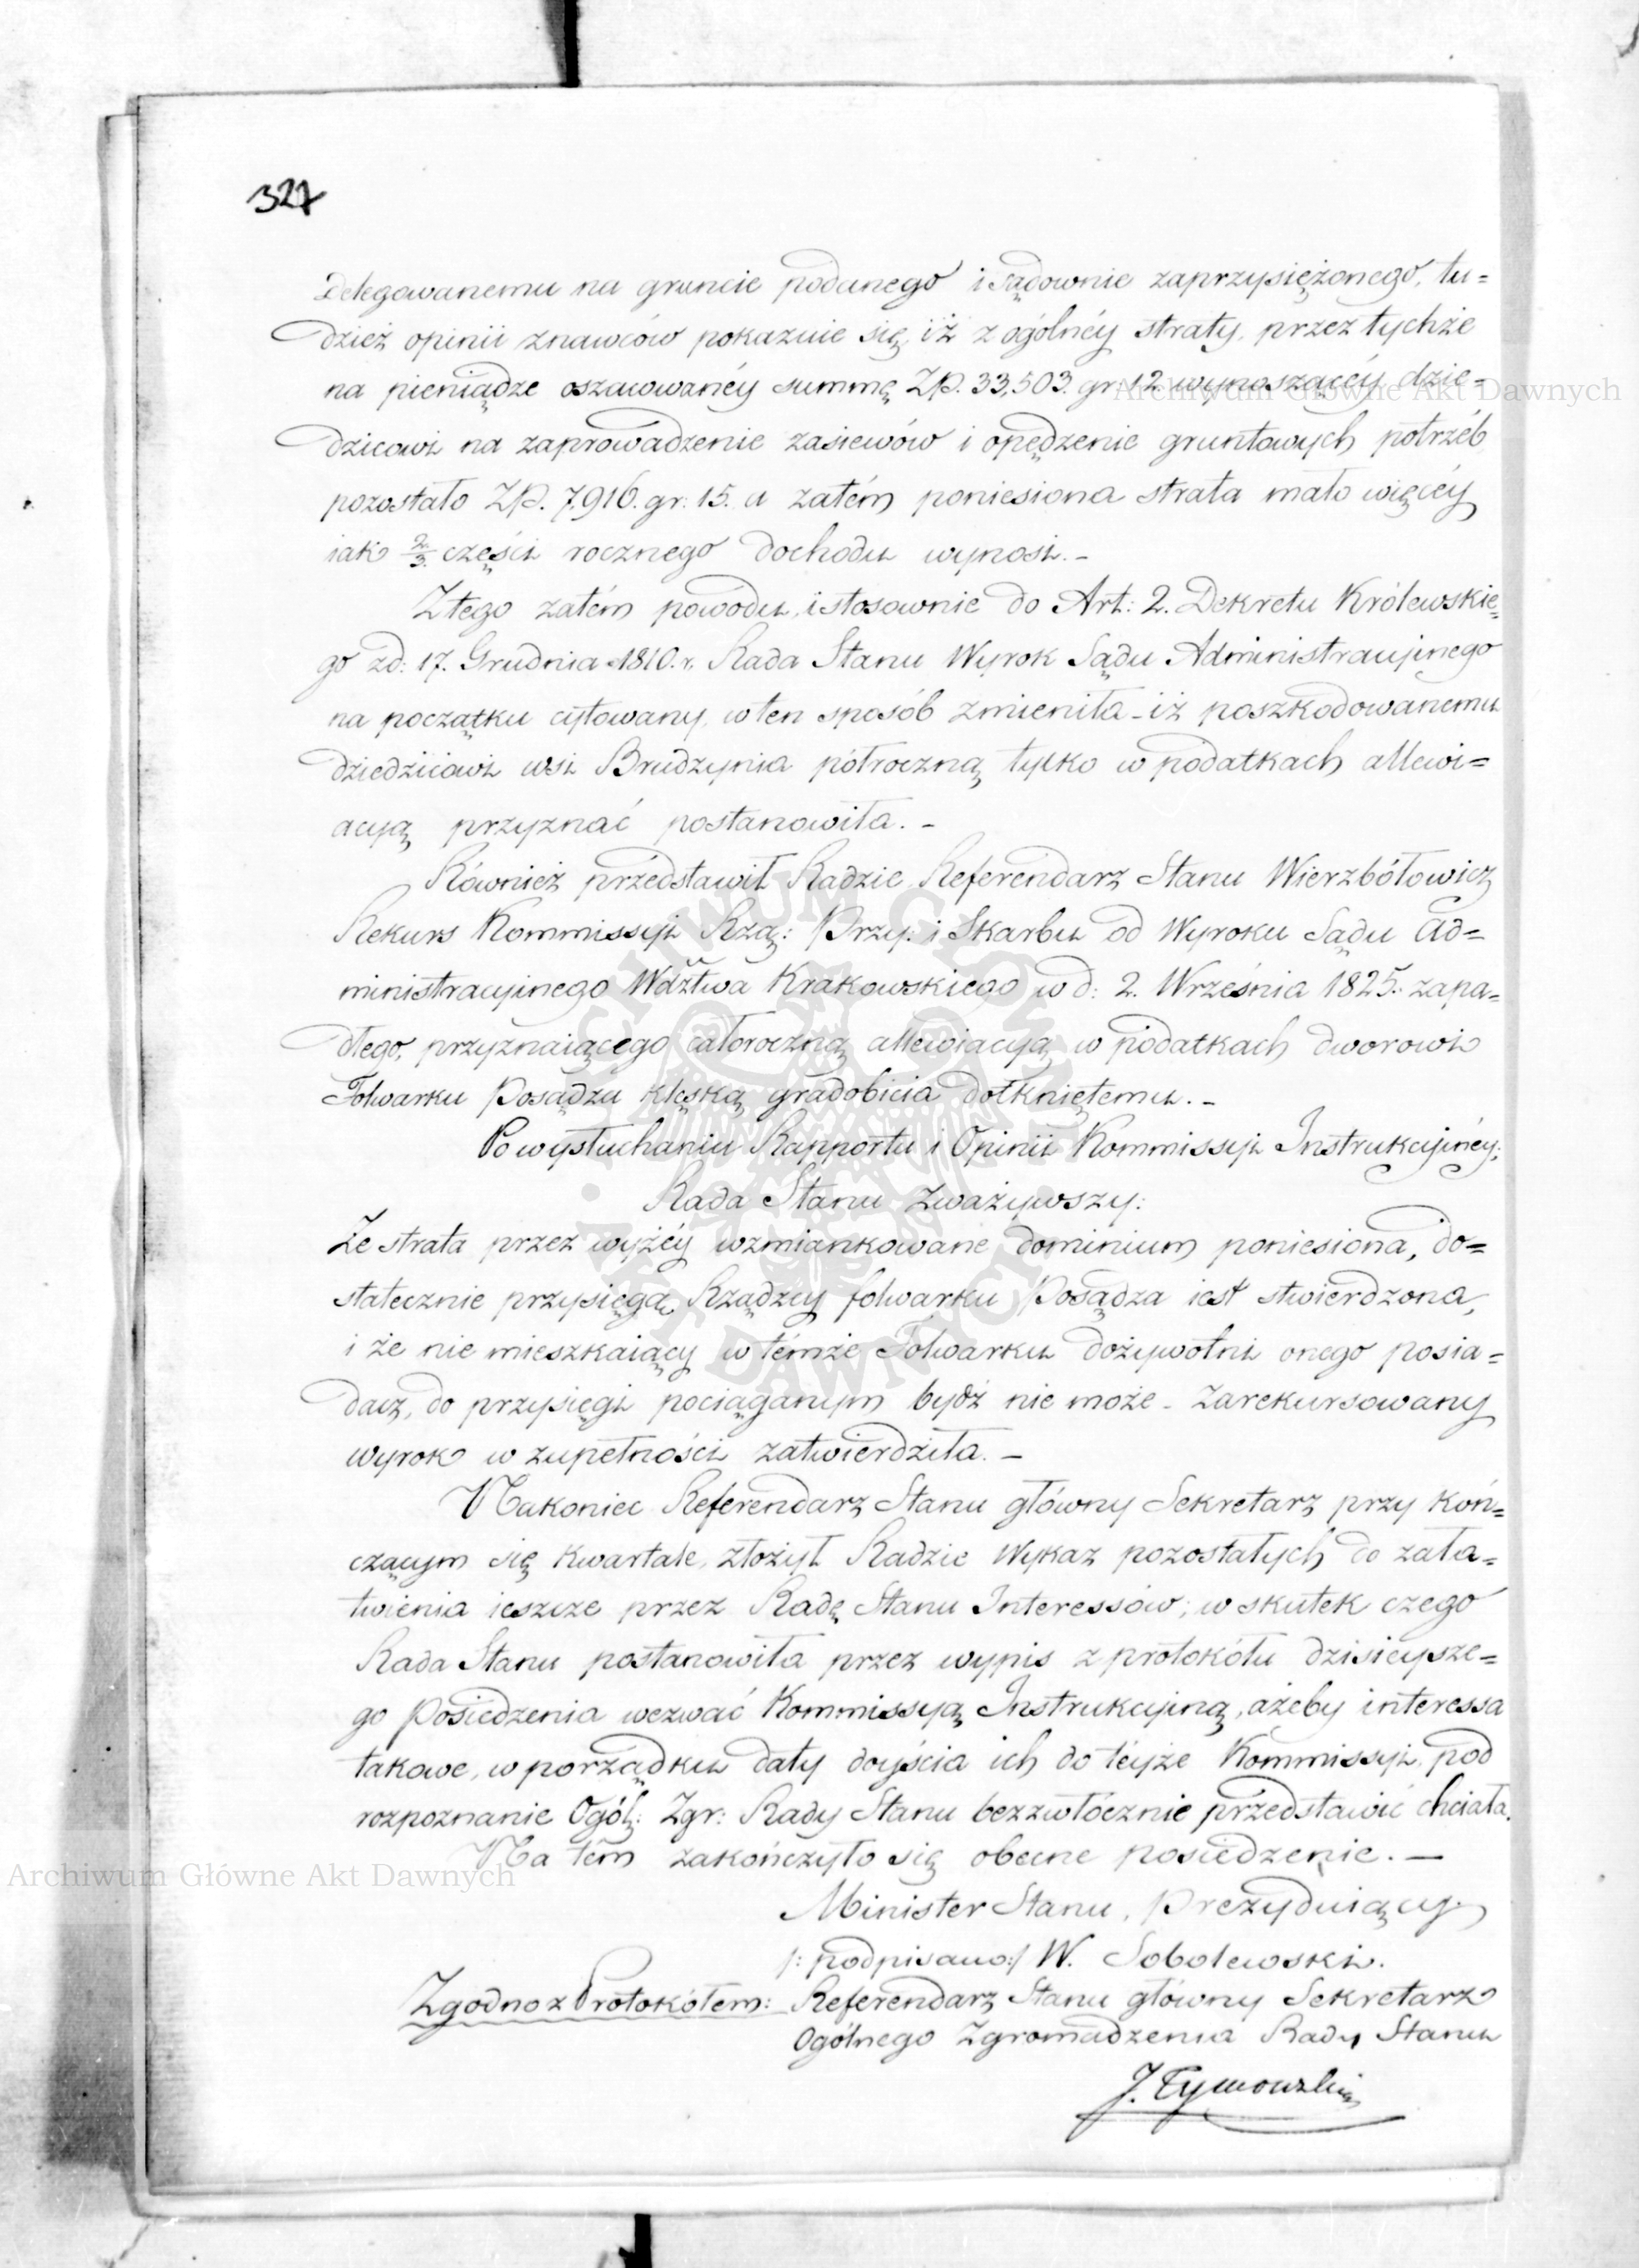 327
Delegowanemu na gruncie podanego i sądownie zaprzysiężonego, tu=
dzież opinii znawców pokazuie się, iż z ogólnéy straty, przez tychże
na pieniądze oszacowanéy summę Zp. 33,503. gr. 12 wynoszącéy dzie=
dzicowi na zaprowadzenie zasiewów i opędzenie gruntowych potrzéb
pozostało Zp. 7,916. gr: 15. a zatém poniesiona strata mało więcéy
iak 2/3. części rocznego dochodu wynosi. –
Z tego zatém powodu, i stosownie do Art: 2. Dekretu Królewskie=
go zd: 17. Grudnia 1810. r. Rada Stanu Wyrok Sądu Administracyjnego
na początku cytowany, w ten sposób zmieniła – iż poszkodowanemu
dziedzicowi wsi Brudzynia półroczną tylko w podatkach allewi=
acyą przyznać postanowiła. –
Również przedstawił Radzie Referendarz Stanu Wierzbółowicz
Rekurs Kommissyi Rzą: Przy: i Skarbu od Wyroku Sądu Ad=
ministracyinego Wdztwa Krakowskiego w d: 2. Września 1825. zapa=
dłego, przyznaiącego całoroczną allewiacyą w podatkach dworowi
Folwarku Posądza klęską gradobicia dotkniętemu. –
Po wysłuchaniu Rapportu i Opinii Kommissyi Instrukcyinéy;
Rada Stanu zważywszy:
Że strata przez wyżéy wzmiankowane dominium poniesiona, do=
statecznie przysięgą Rządzcy folwarku Posądza iest stwierdzona,
i że nie mieszkaiący w témże Folwarku dożywotni onego posia=
dacz, do przysięgi pociąganym bydź nie może – zarekursowany
wyrok w zupełności zatwierdziła. –
Nakoniec Referendarz Stanu główny Sekretarz przy koń=
czącym się kwartale, złożył Radzie Wykaz pozostałych do zała=
twienia ieszcze przez Radę Stanu Interessów; w skutek czego
Rada Stanu postanowiła przez wypis z protokółu dzisieysze=
go Posiedzenia wezwać Kommissyą Instrukcyjną, ażeby interessa
takowe, w porządku daty doyścia ich do téyże Kommissyi, pod
rozpoznanie Ogól: Zgr: Rady Stanu bezzwłócznie przedstawić chciała.
Na tém zakończyło się obecne posiedzenie. —
Minister Stanu, Prezyduiący
/: podpisano:/ W. Sobolewski.
Zgodno z Protokółem: Referendarz Stanu główny Sekretarz
Ogólnego Zgromadzenia Rady Stanu
J. Tymowski
Archiwum Główne Akt Dawnych
Archiwum Główne Akt Dawnych
ARCHIWUM GŁÓWNE AKT DAWNYCH